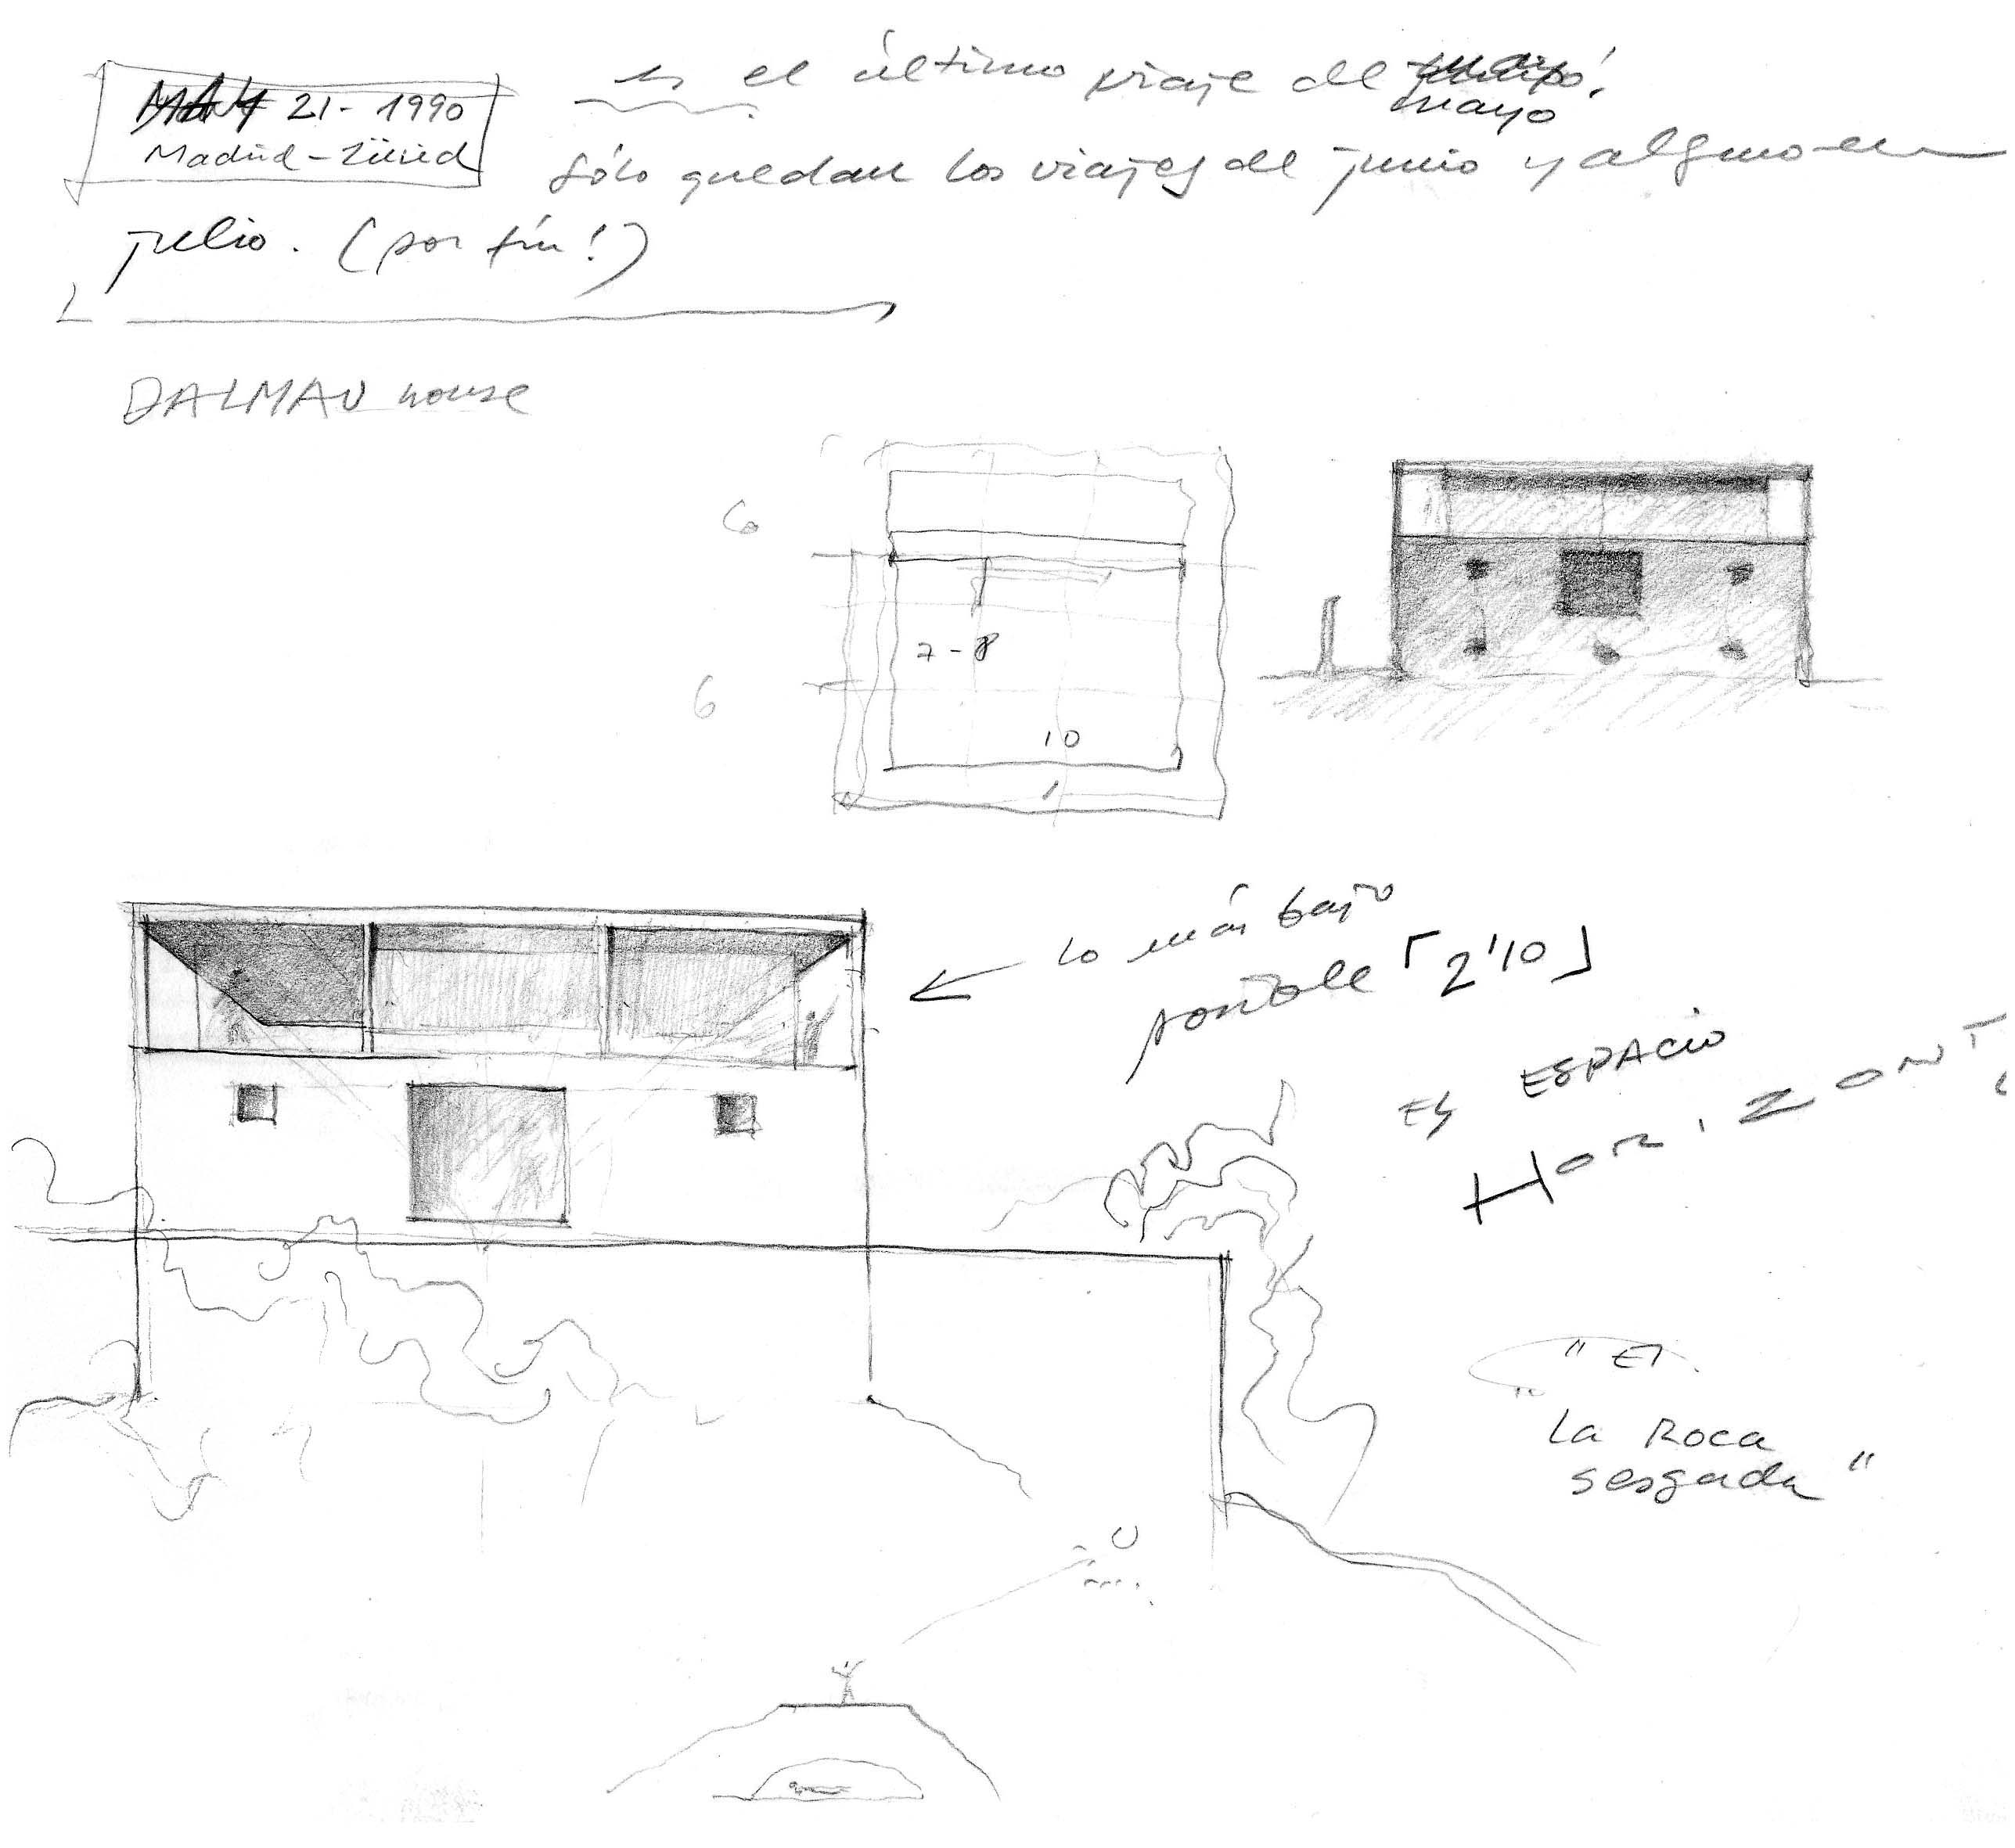 MAY 21-1990
Madrid-Zürich
es el último viaje del
mayo!
Sólo quedan los viajes de junio y alguno en
julio. (por fin!)
DALMAU house
6
7-8
6
10
1
lo más bajo
posible 「2'10」
ES ESPACIO
HORIZONT
"El
La Roca
sesgada"